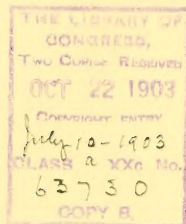 THE LIBRARY OF
CONGRESS,
TWO COPIES RECEIVED
OCT 22 1903
COPYRIGHT ENTRY
July 10-1903
CLASS a XXc No.
63730
COPY B.